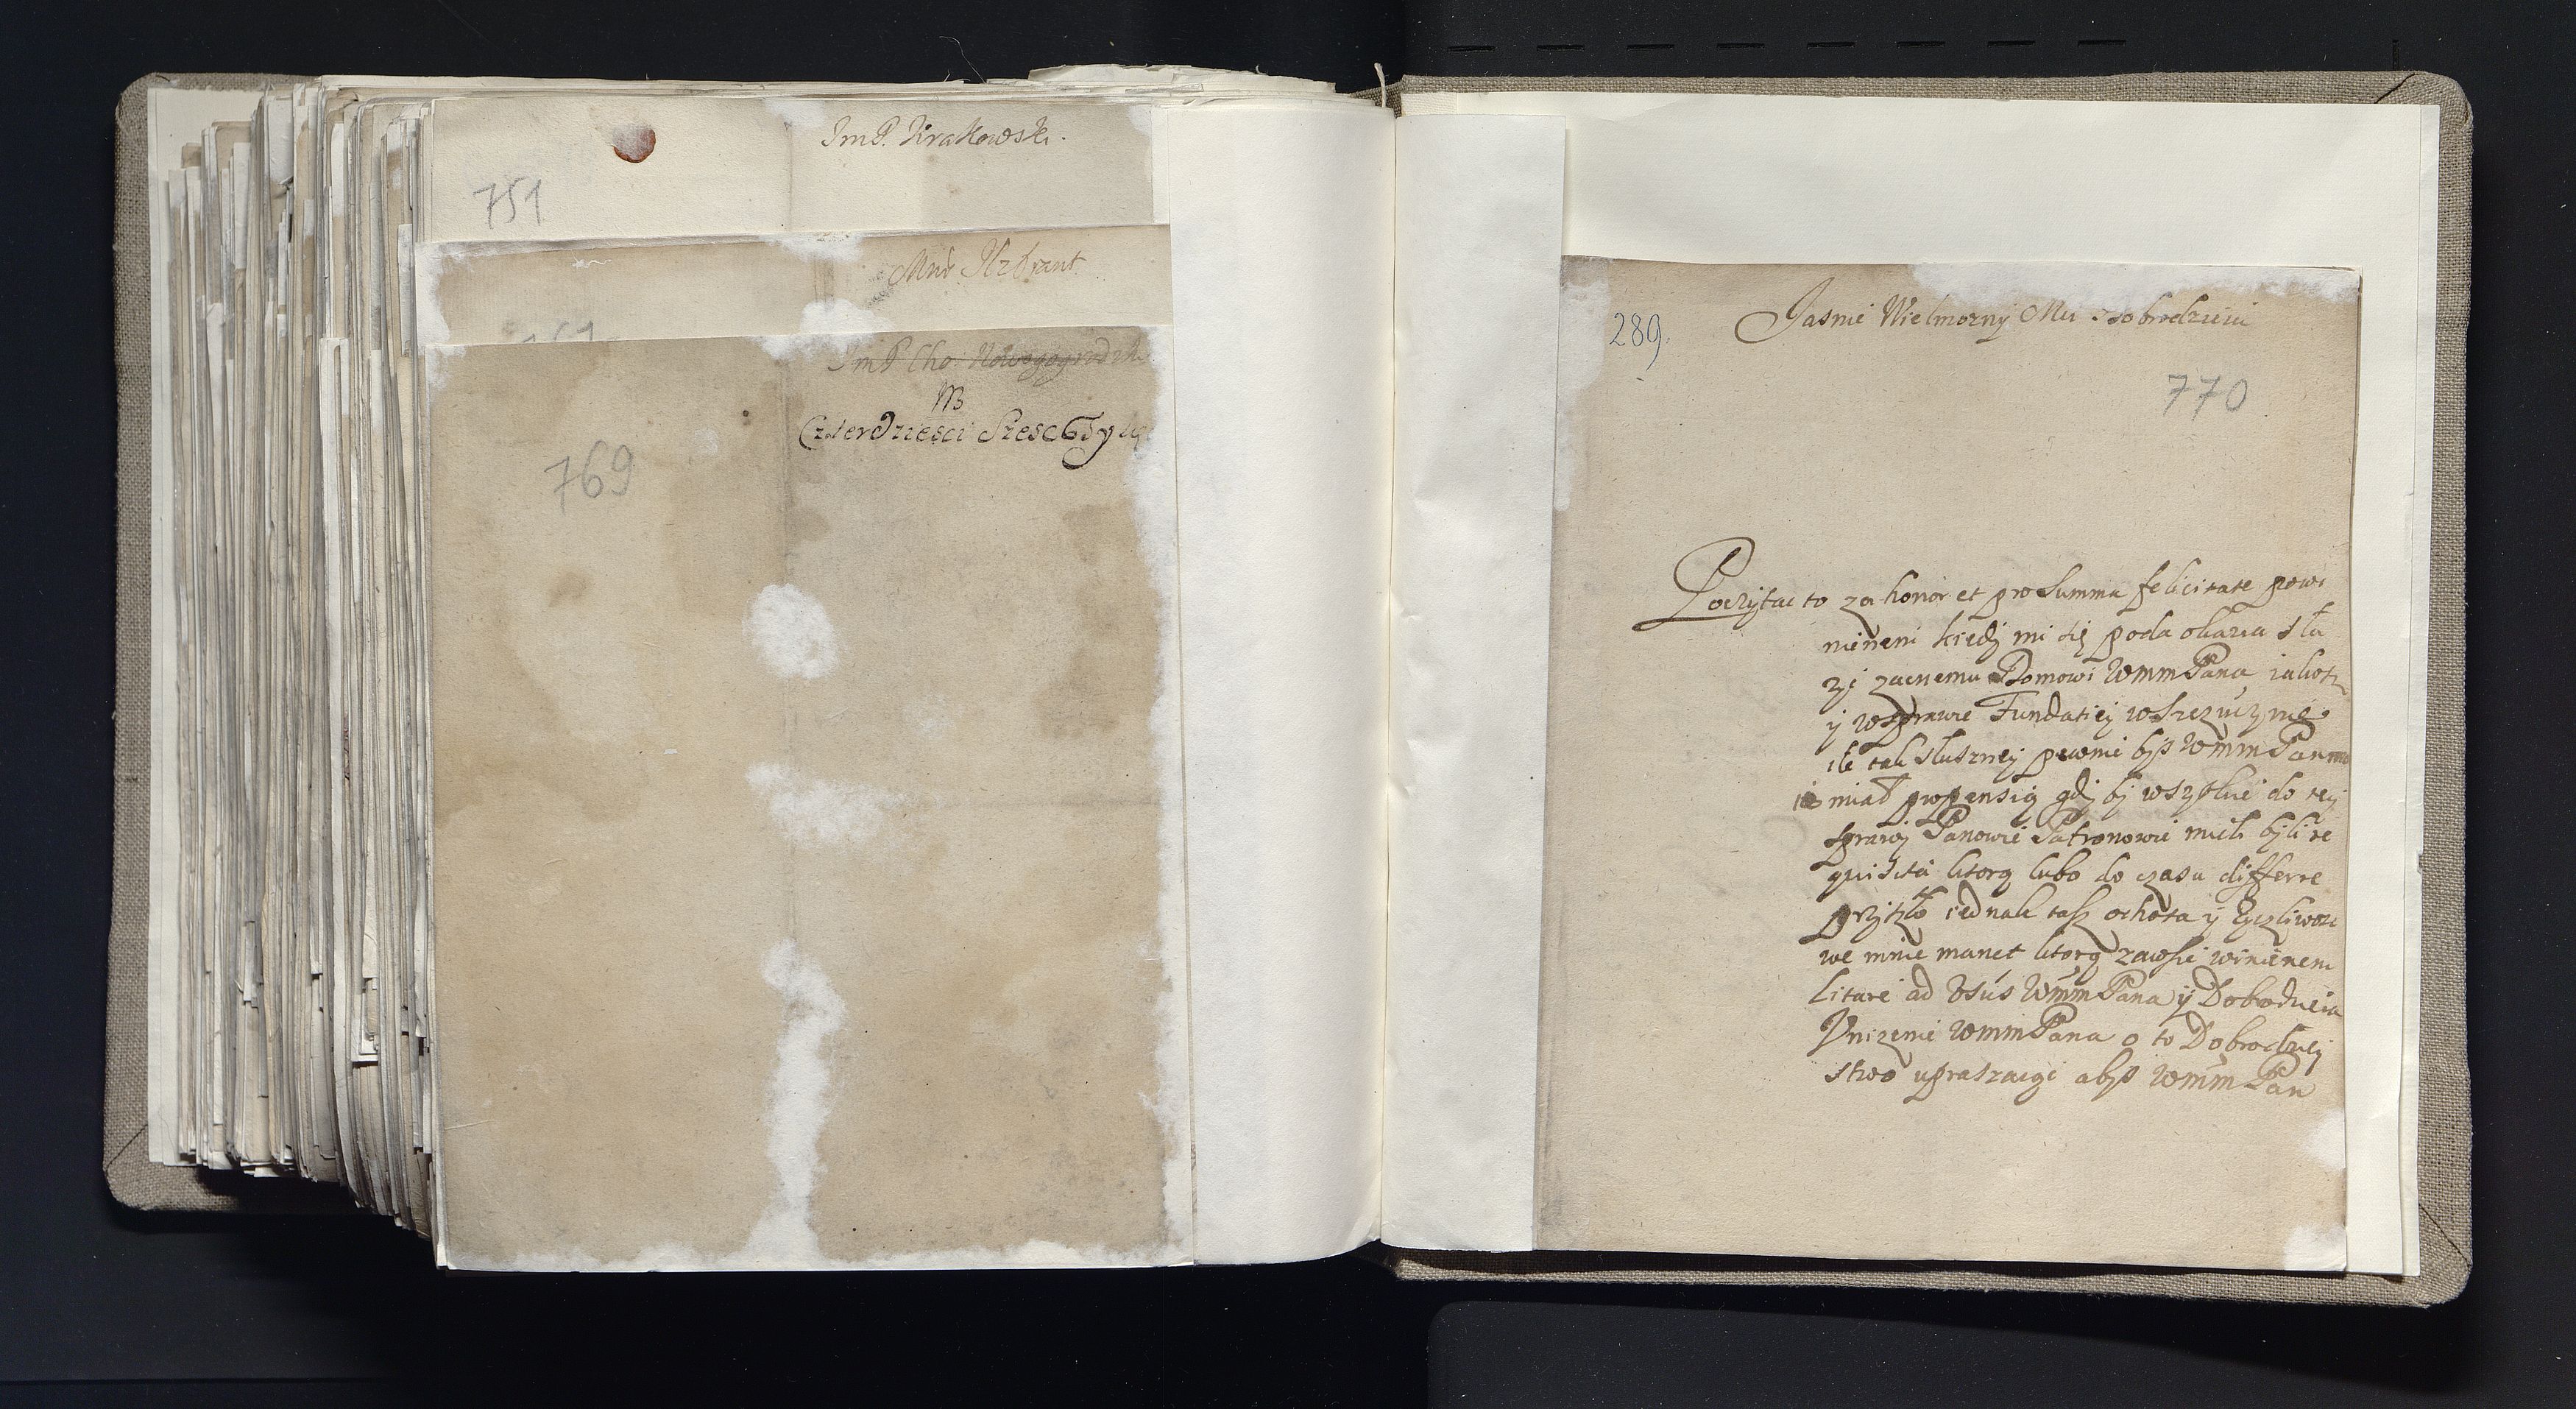 JmP. Krakowski.
751
Mur
JmP Cho: Nowogrodzki
NB
Czterdziesci Szesc
769
289.
Jasnie Wielmozny Mci Dobrodzieiu
770
Poczytac to za honor et pro Summa felicitate powi
nienem kiedy mi się poda okazia słu
zyc zacnemu Domowi WmmPana iakosz
y wsprawie Fundatiey
ile tak słuszney pewnie bys WmmPan
miał propensią gdy by wszytkie do tey
sprawy Panowie Patronowie mieli byli re
quisita ktorą lubo do czasu differre
przyszło iednak tasz ochota y zyczliwosc
we mnie manet ktorą zawsze winienem
litare ad Usus WmmPana y Dobrodzieia
Unizenie WmmPana o to Dobrodziey
stwo upraszaiąc abys WmmPan